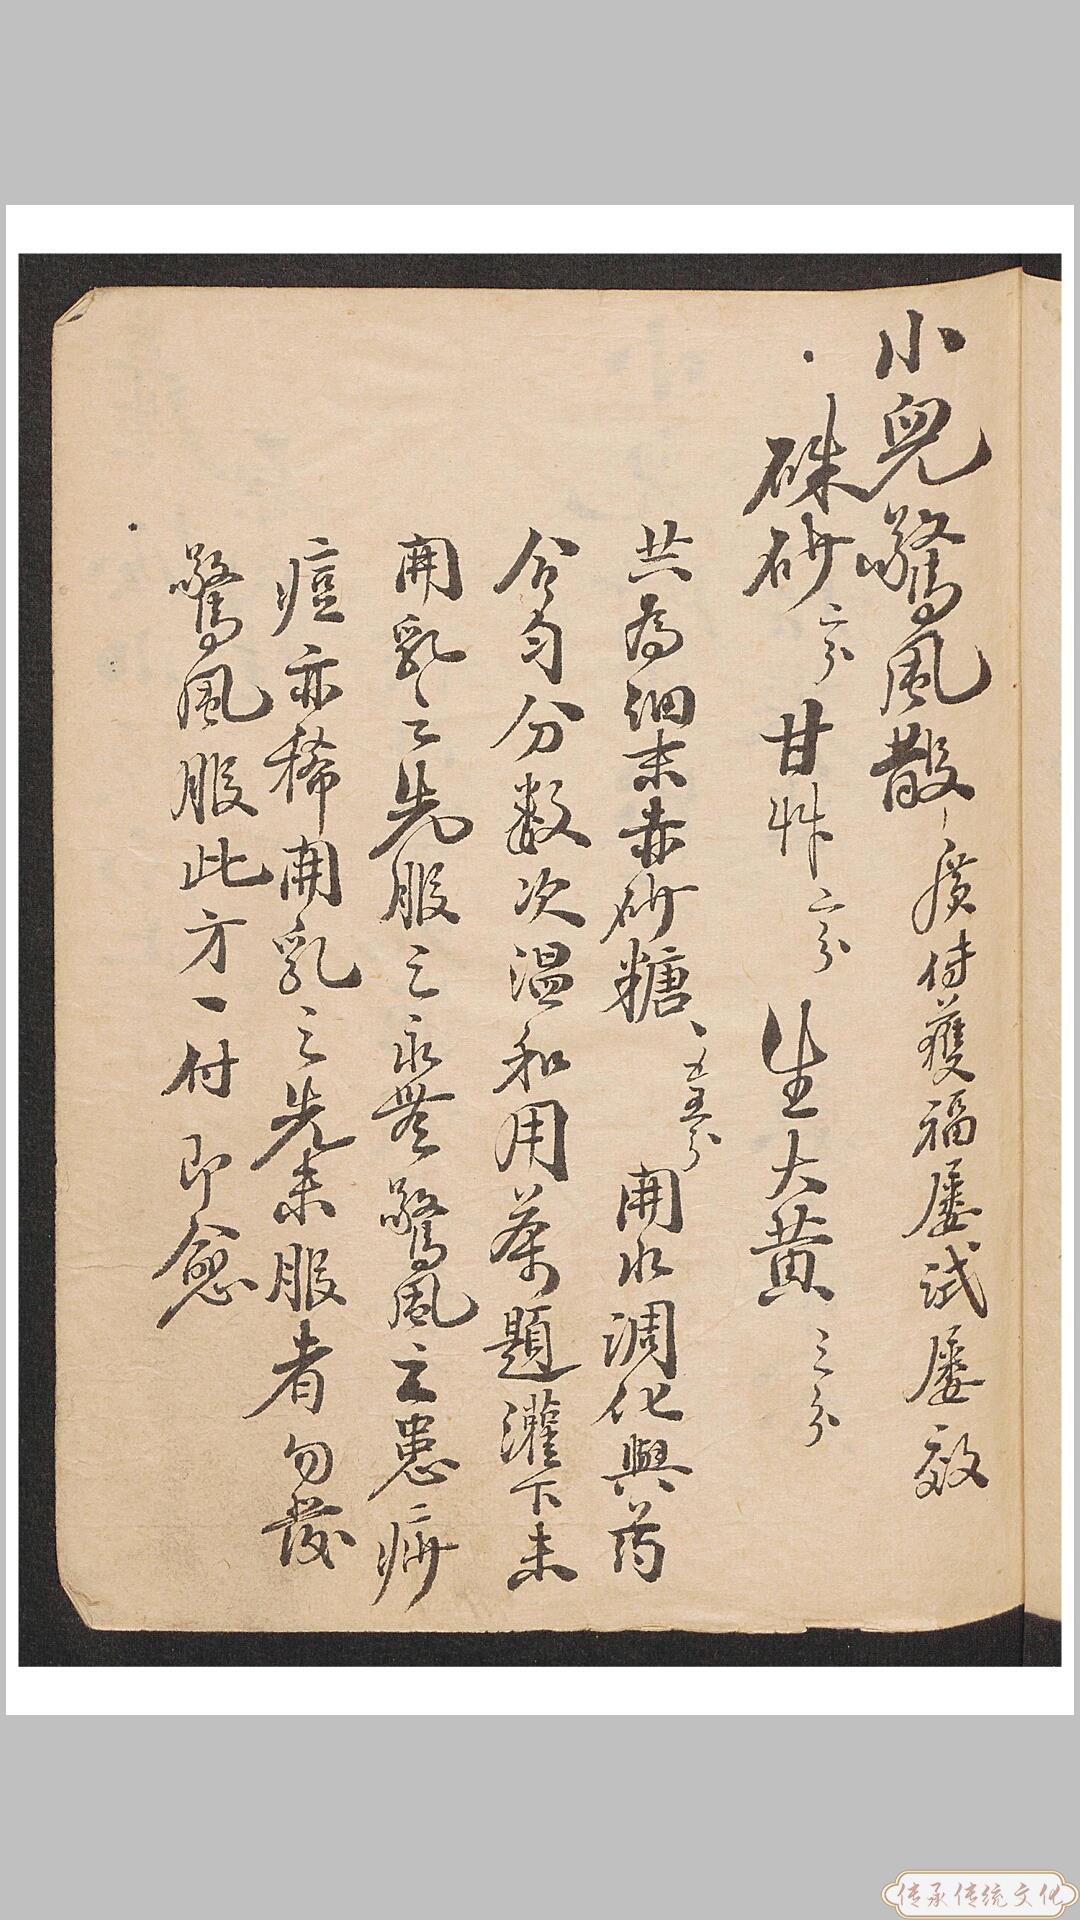 小兒驚風散 廣傳獲福屢試屢效
硃砂二分 甘艸二分 生大黃三分
共為細末赤砂糖五分 開水調化與药
合勻分数次温和用茶題灌下未
開乳之先服之永無驚風之患痧
痘亦稀開乳之先未服者勿發
驚風服此方一付即愈
传承传统文化